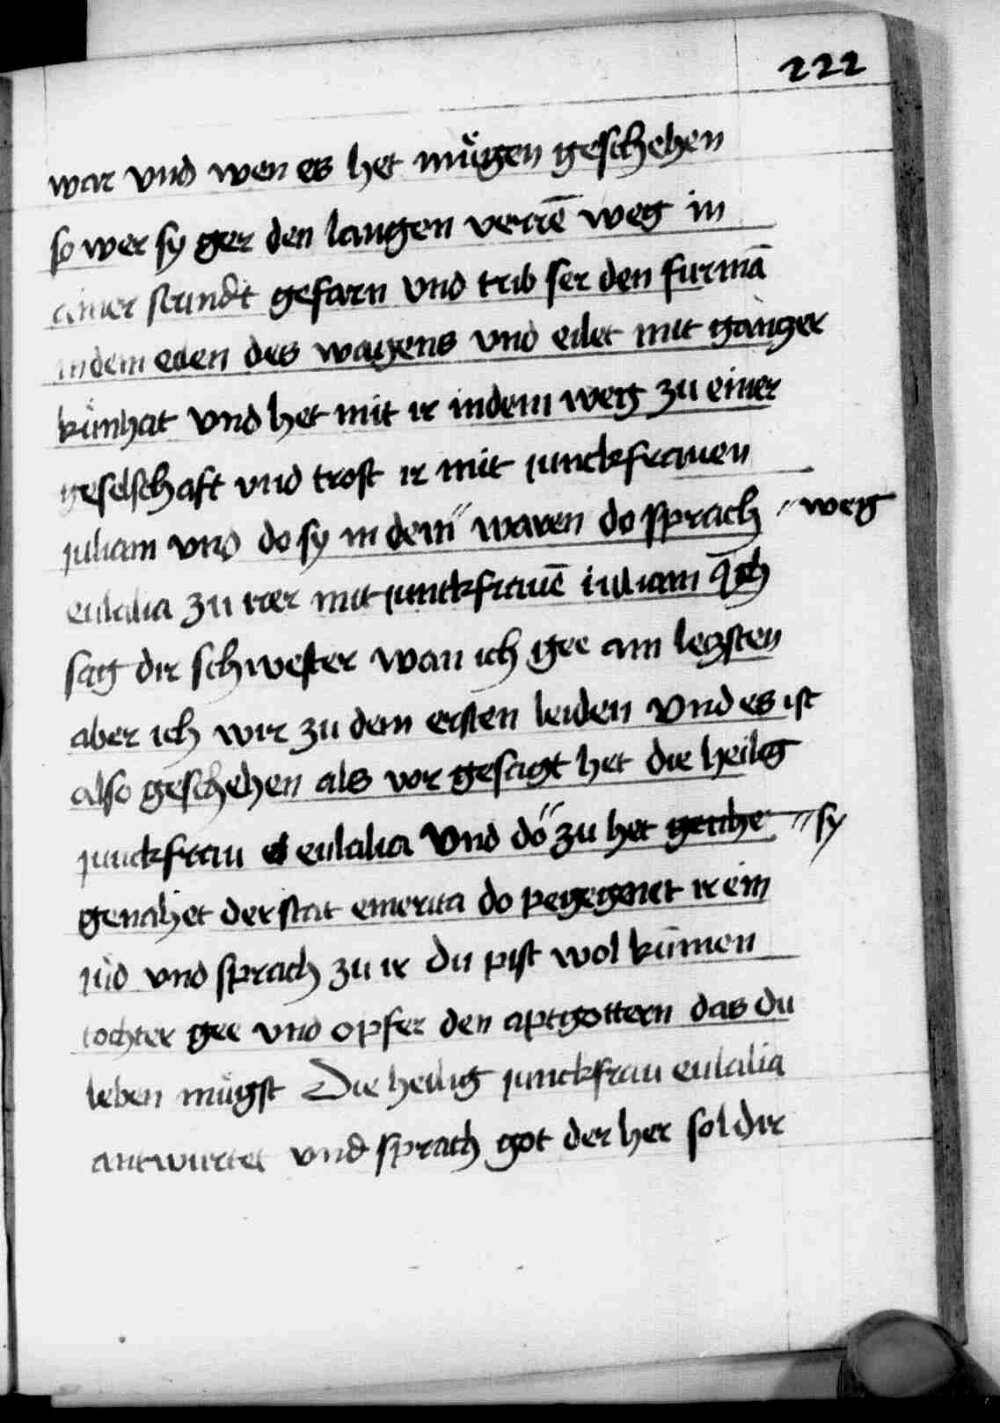 222
war vnd wen es het mu̇gen geschehen
so wer sy ger den langen verrē weg in
ainer stundt gefarn vnd trib ser den furmā
indem eden des wagens vnd eilet mit ganczer
ku̇nhat vnd het mit ir indem weg zu einer
geselschaft vnd trost ir mit junckfrauen
juliam vnd do sy in dem〃 waren do sprach 〃weg
eulalia zu irer mit junckfrauē iuliam Ich
sag dir schwester wan ich gee am leczsten
aber ich wir zu dem ersten leiden vnd es ist
also geschehen als vor gesagt het die heilig
junckfrau eulalia vnd do〃 zu het genahe 〃sy
genahet der stat emerita do pegegnet ir ein
jud vnd sprach zu ir du pist wol kumen
tochter gee vnd opfer den aptgottern das du
leben mu̇gst Die heilig junckfrau eulalia
antwurtet vnd sprach got der her sol dir